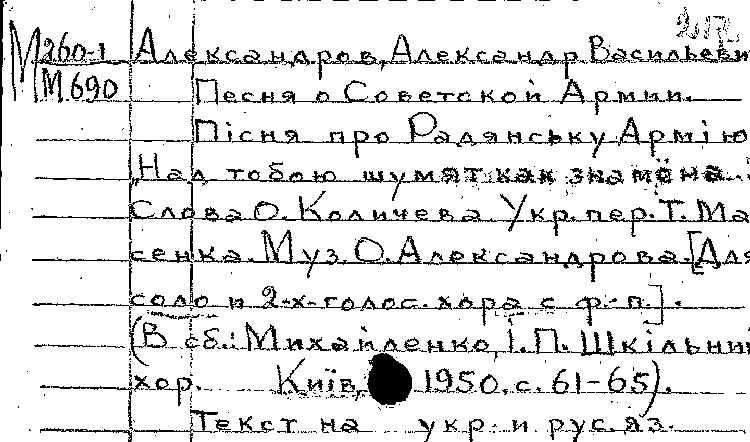 М260-1 Александров, Александр Васильеви
М.690 Песня о Советской Армии.
Пісня про Радянську Армію
„Над тобою шумят как знамёна...
Слова О. Количева Укр. пер. Т. Ма
сенка. Муз. О. Александрова. [Для
соло и 2-х-голос. хора с ф.-п.].
(В сб.: Михайленко, І. П. Шкільний
хор. Київ, 1950, с. 61-65).
Текст на укр. и рус. яз.